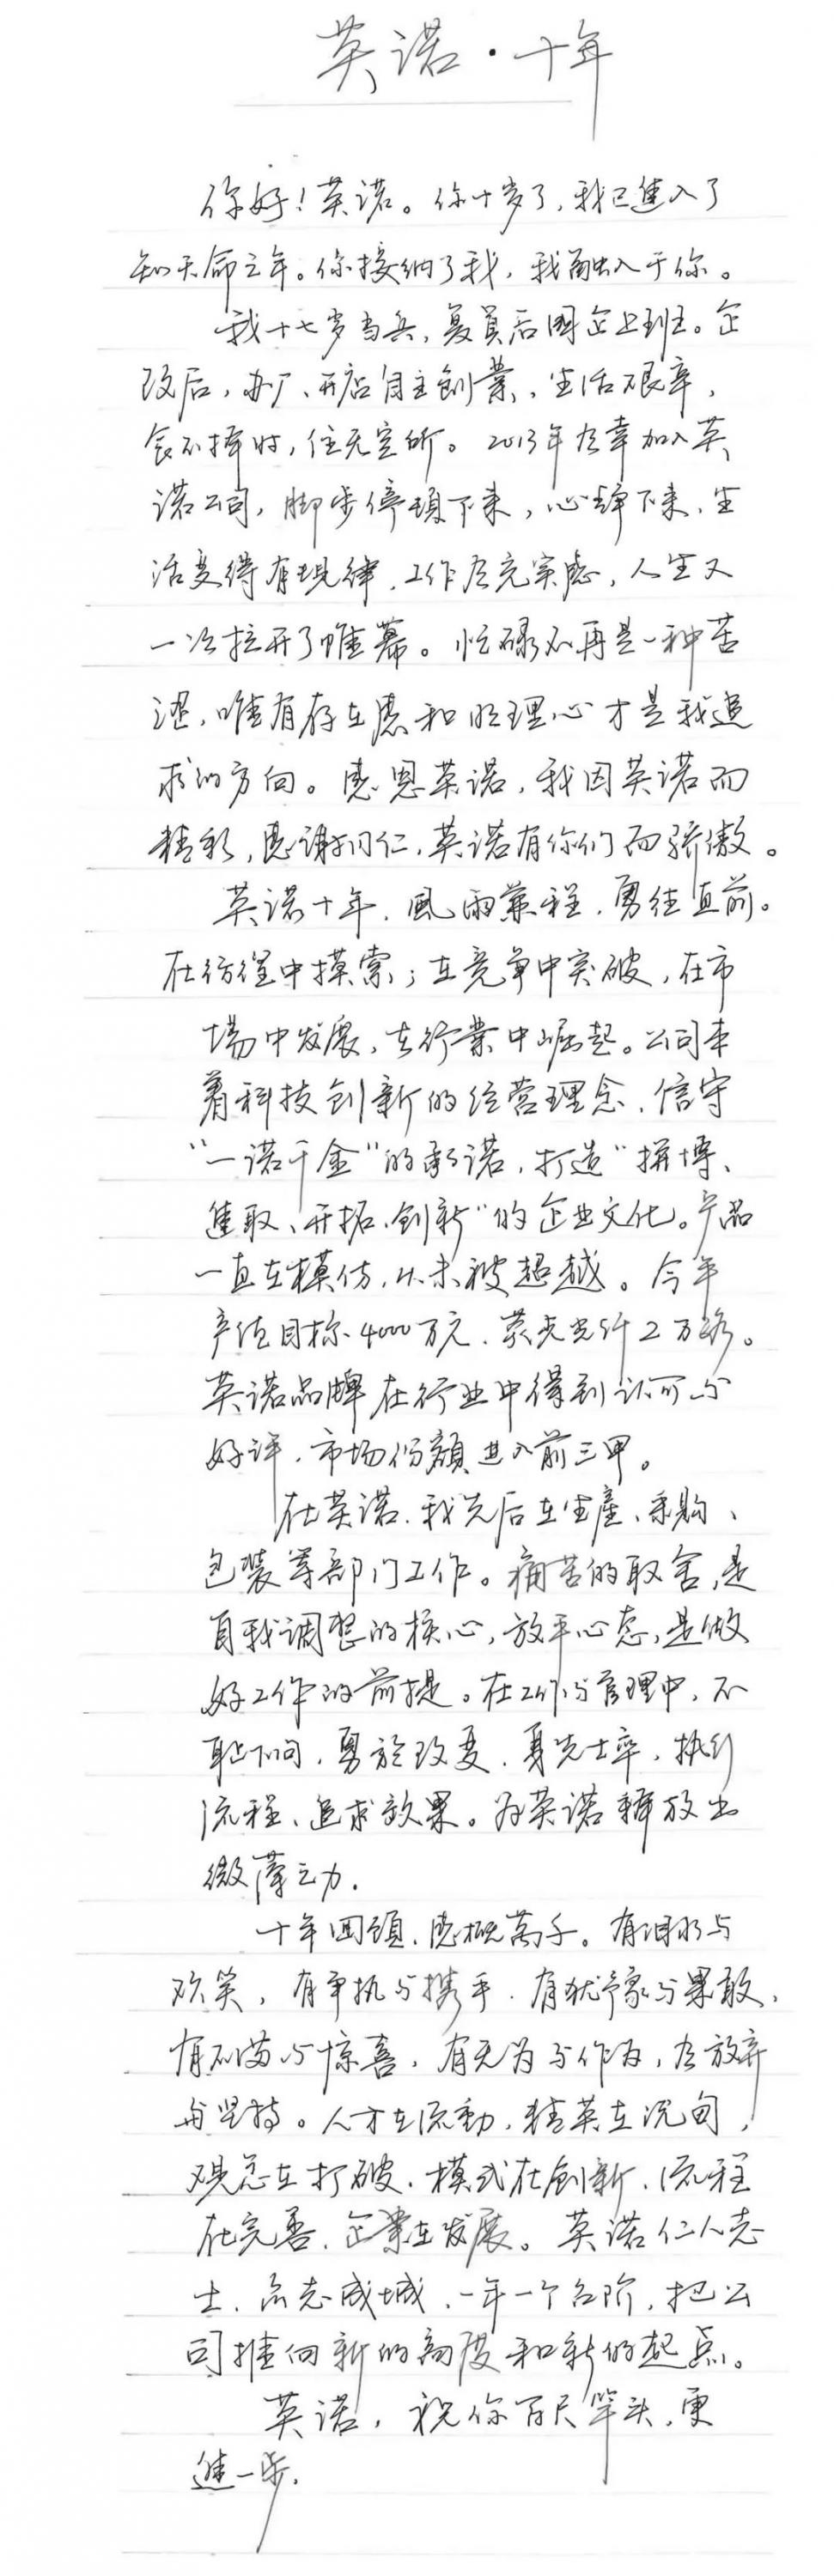 英诺·十年
你好！英诺。你十岁了，我已進入了
知天命之年。你接纳了我，我融入于你。
我十七岁当兵，复員后国企上班。企
改后，办厂、开店自主創業，生活艰辛，
食不择时，住无定所。2013年有幸加入英
诺公司，脚步停頓下来，心静下来，生
活变得有規律，工作有充实感，人生又
一次拉开了帷幕。忙碌不再是一种苦
涩，唯有存在感和明理心才是我追
求的方向。感恩英诺，我因英诺而
精彩，感谢同仁，英诺有你们而骄傲。
英诺十年，風雨兼程，勇往直前。
在彷徨中摸索；在竞争中突破，在市
場中发展，在行業中崛起。公司本
着科技创新的经营理念，信守
“一诺千金”的承诺，打造“拼博、
進取、开拓、创新”的企业文化。产品
一直在模仿，从未被超越。今年
产值目标4000万元，荧光光纤2万路。
英诺品牌在行业中得到认可与
好评，市场份額进入前三甲。
在英诺，我先后在生產、采购、
包装等部门工作。痛苦的取舍，是
自我调整的核心，放平心态，是做
好工作的前提。在工作与管理中，不
耻下问，勇於改变，身先士卒，执行
流程、追求效果。为英诺释放出
微薄之力．
十年回頭，感概萬千。有泪水与
欢笑，有争执与携手，有犹豫与果敢，
有不满与惊喜，有无为与作为，有放弃
与坚持。人才在流動，精英在沉甸，
观念在打破，模式在創新，流程
在完善，企業在发展。英诺仁人志
士，众志成城，一年一个台阶，把公
司推向新的高度和新的起点。
英诺，祝你百尺竿头，更
進一步．